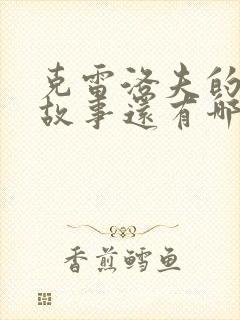 克雷洛夫的
故事还有哪
香煎鳕鱼